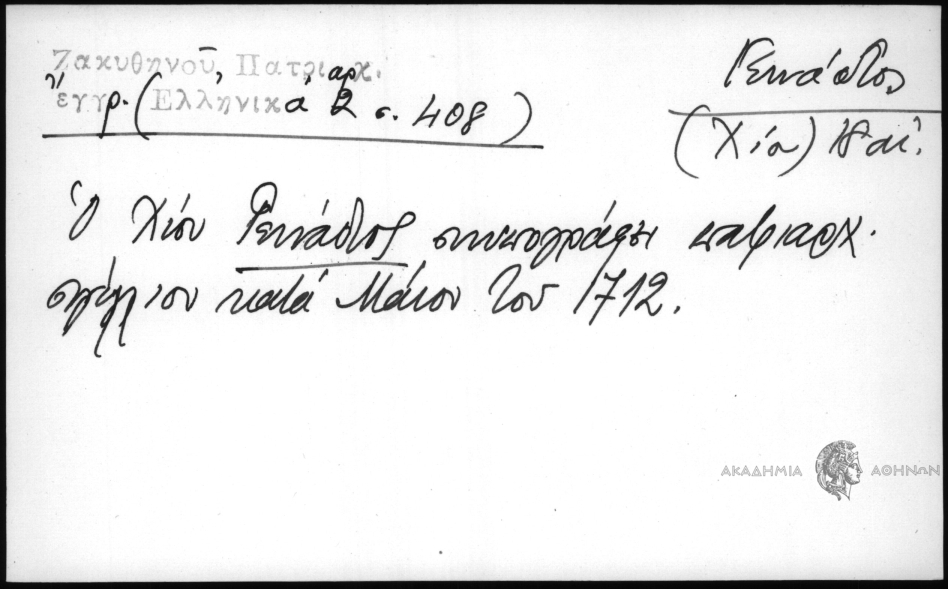 Ζακυθηνοῦ, Πατριαρχ.
ἔγγρ. (Ἑλληνικά 2 σ. 408)
Γεννάδιος
(Χίου) 18 αἰ.
Ὁ Χίου Γεννάδιος συνυπογράφει πατριαρχ.
σιγίλλιον κατά Μάιον τοῦ 1712.
ΑΚΑΔΗΜΙΑ ΑΘΗΝΩΝ